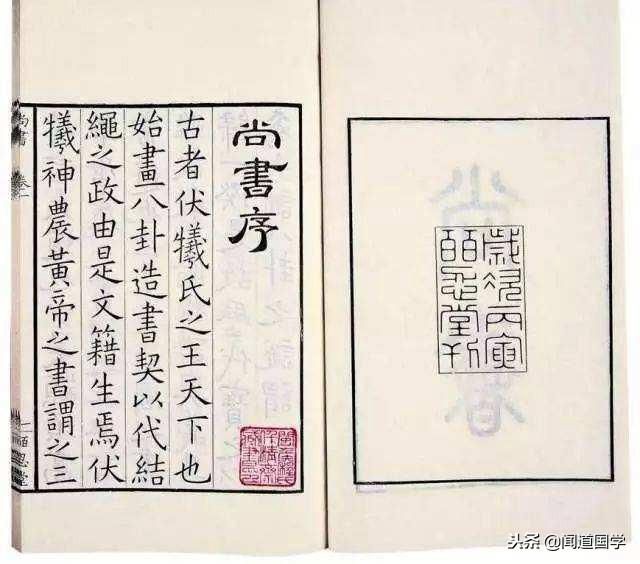 歲次丙寅
皕忍堂刊
尚書序
古者伏犧氏之王天下也
始畫八卦造書契以代結
繩之政由是文籍生焉伏
犧神農黃帝之書謂之三
尚書 卷一
一 皕忍堂
头条 @闻道国学